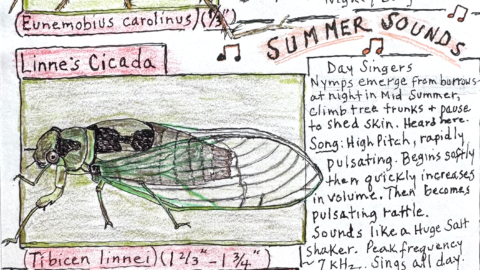 (Eunemobius carolinus) (1/3")
SUMMER SOUNDS
Linne's Cicada
Day Singers
Nymps emerge from burrows
at night in Mid Summer,
climb tree trunks + pause
to shed skin. Heard here.
Song: High Pitch, rapidly
pulsating. Begins softly
then quickly increases
in volume. Then becomes
pulsating rattle.
Sounds like a Huge Salt
Shaker. Peak frequency
~ 7 kHz. Sings all day.
(Tibicen linnei) (1 2/3" - 1 3/4")